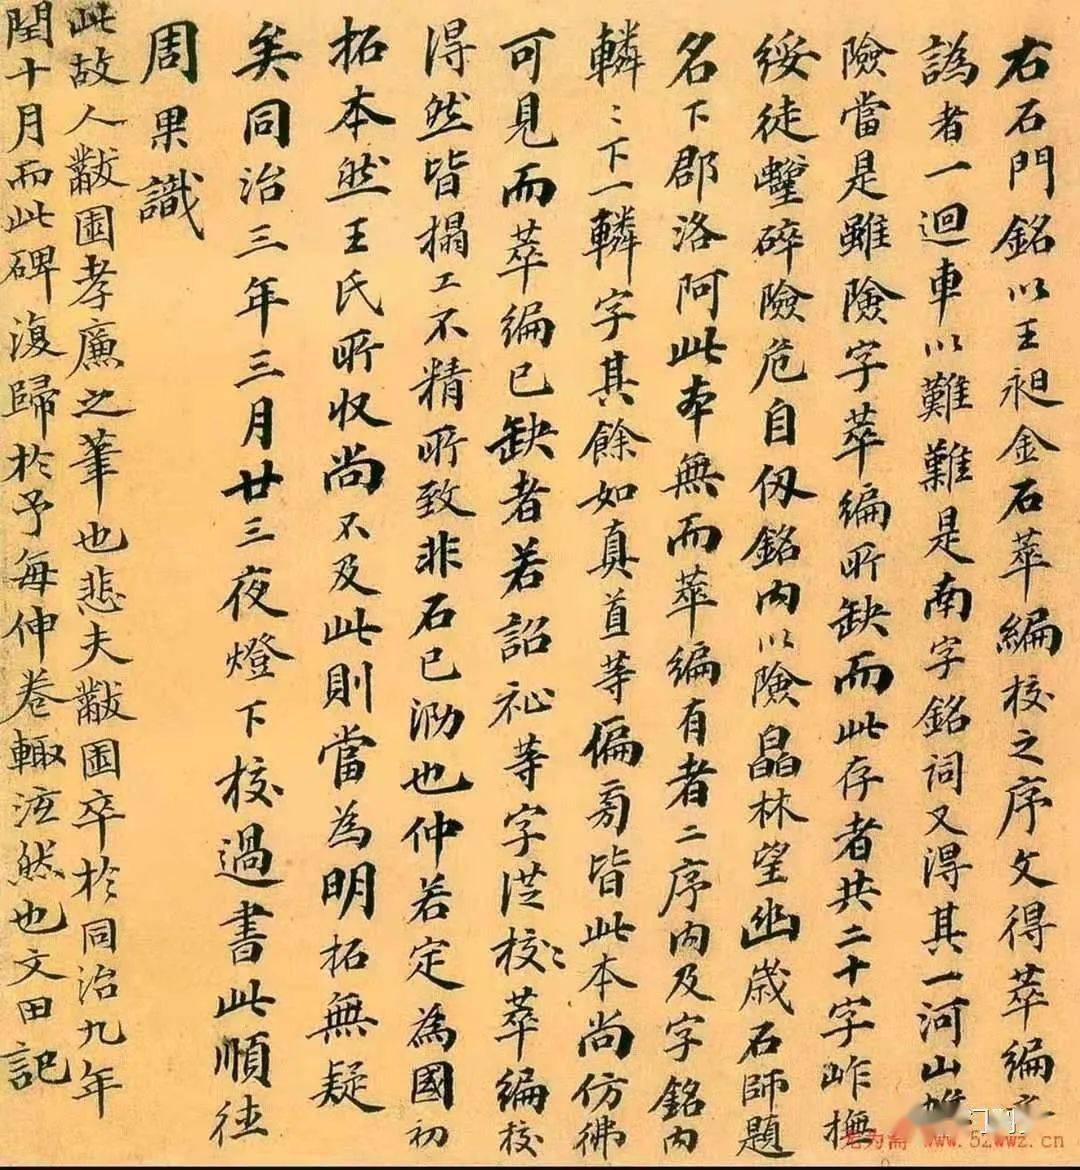 右石門銘以王昶金石萃編校之序文得萃編之
譌者一迴車以難難是南字銘詞又得其一河山惟
險當是雖險字萃編所缺而此存者共二十字岞憮
綏徒鑿碎險危自伋銘內以險皛林望幽歲石師題
名下郡洛阿此本無而萃編有者二序內及字銘內
轔〻下一轔字其餘如真首等偏旁皆此本尚仿彿
可見而萃編已缺者若詔祉等字從校〻萃編校
得然皆搨工不精所致非石已泐也仲若定為國初
拓本然王氏所收尚不及此則當為明拓無疑
矣同治三年三月廿三夜燈下校過書此順德
周果識
此故人黻園孝廉之筆也悲夫黻園卒於同治九年
閏十月而此碑復歸於予每伸卷輒泫然也文田記
www.52wwz.cn